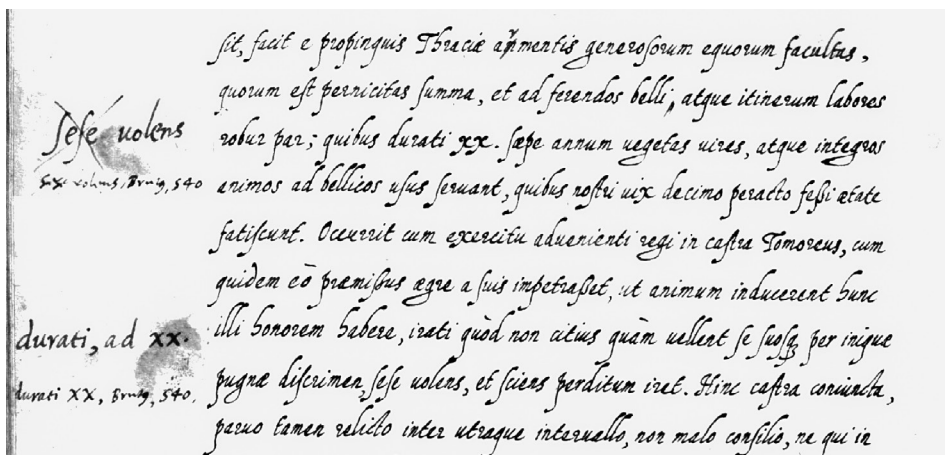 sit, facit e propinquis Thraciæ armentis generosorum equorum facultas,
quorum est pernicitas summa, et ad ferendos belli, atque itinerum labores
sese uolens
robur par; quibus durati xx. sæpe annum uegetas uires, atque integros
Bruty, 540
animos ad bellicos usus seruant, quibus nostri uix decimo peracto feßi ætate
fatiscunt. Occurrit cum exercitu aduenienti regi in castra Tomoreus, cum
quidem eò præmißus ægre a suis impetraßet, ut animum inducerent hunc
durati, ad xx.
illi honorem habere, irati quòd non citius quàm uellent se suosq; per inique
durati XX, Bruty, 540.
pugnæ discrimen, sese uolens, et sciens perditum iret. Hinc castra coniuncta,
paruo tamen relicto inter utraque interuallo, non malo consilio, ne qui in